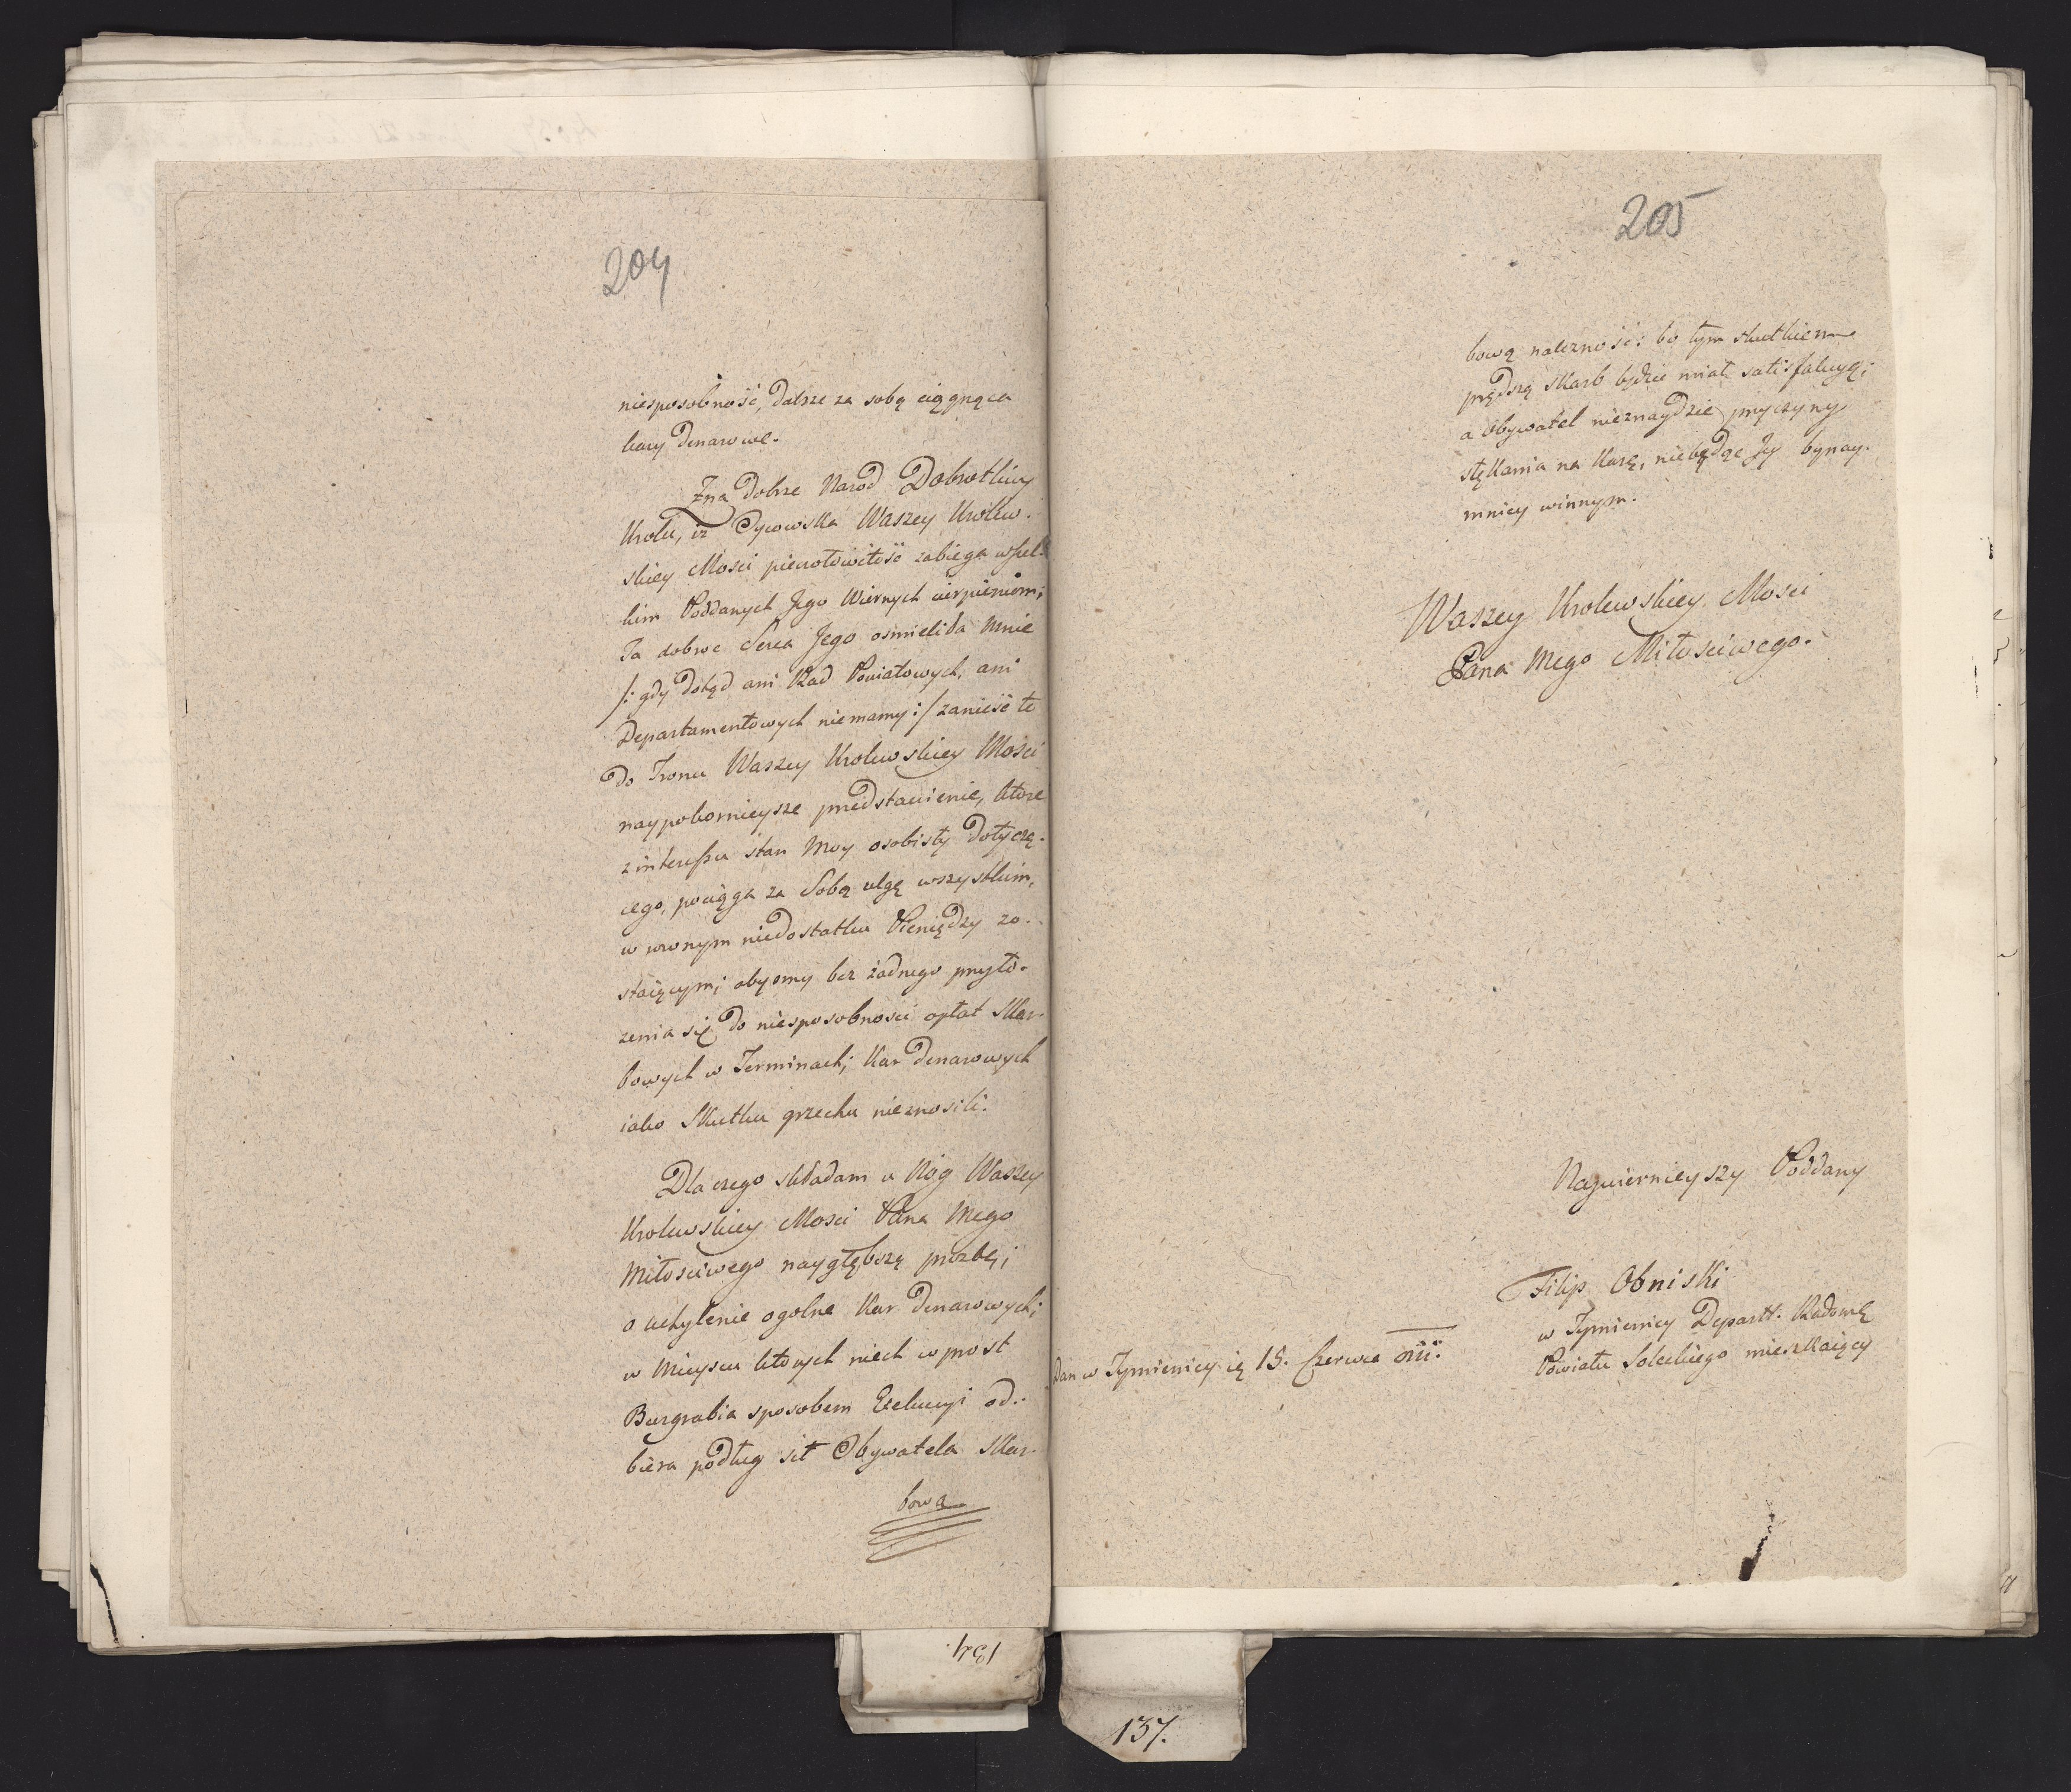 204
niesposobność, dalsze za sobą ciągnąca
kary denarowe.
Zna dobrze Narod Dobrotliwy
Krolu, iż Oycowska Waszey Krolew-
skiey Mosci pieczołowitość zabiega wszel-
kim Poddanych Jego Wiernych cierpieniom;
Ta dobroć Serca Jego osmieliła mnie
/: gdy dotąd ani Rad Powiatowych, ani
Departamentowych niemamy :/ zanieść to
do Tronu Waszey Krolewskiey Mosci
naypokornieysze przedstawienie, ktore
z interessu stan moy osobisty dotyczą-
cego, pociąga za Sobą ulgę wszystkim,
w rownym niedostatku Pieniędzy zo-
staiącym; abyśmy bez żadnego przyło-
żenia się do niesposobności opłat Skar-
bowych w Terminach; Kar denarowych
iako Skutku grzechu nieznosili.
Dla czego składam u Nóg Waszey
Krolewskiey Mosci Pana Mego
Miłościwego naygłębszą prożbę;
o uchylenie ogolne Kar denarowych;
w Mieyscu ktorych niech wprost
Burgrabia sposobem Exekucyi od-
biera podług sił Obywatela Skar-
bową
134.
205
bową należność: bo tym skutkiem
prędszą Skarb będzie miał satisfakcyą;
a Obywatel nieznaydzie przyczyny
stękania na Karę, niebędąc Jey bynay-
mniey winnym.
Waszey Krolewskiey Mosci
Pana Mego Miłościwego.
Naywiernieyszy Poddany
Filip Obniski
w Tymienicy Departt. Radomsk
Powiatu Soleckiego mieszkaiący
Dan w Tymienicy 15. Czerwca
137.